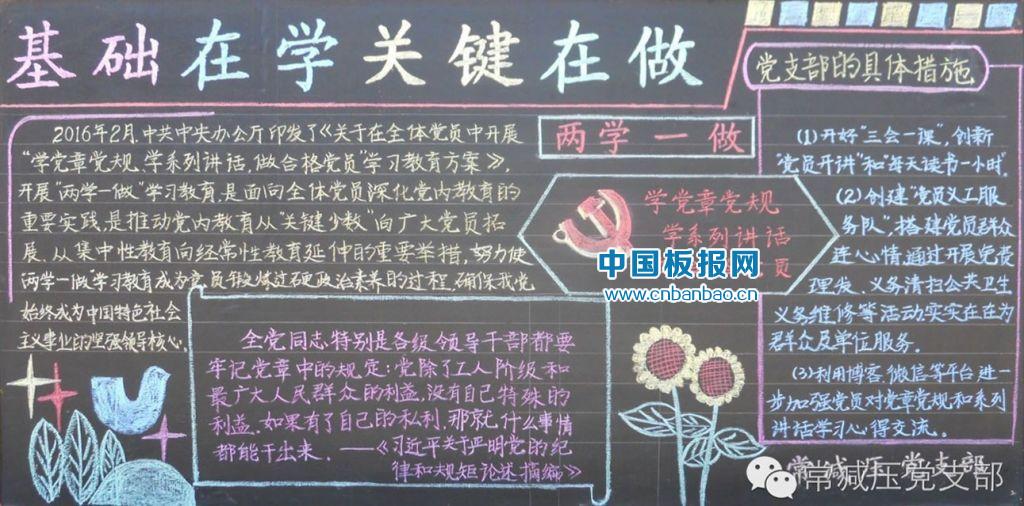 基础在学关键在做
2016年2月,中共中央办公厅印发了《关于在全体党员中开展
“学党章党规、学系列讲话,做合格党员”学习教育方案》。
开展“两学一做”学习教育,是面向全体党员深化党内教育的
重要实践,是推动党内教育从“关键少数”向广大党员拓
展、从集中性教育向经常性教育延伸的重要举措,努力使
两学一做”学习教育成为党员锻炼过硬政治素养的过程,确保我党
始终成为中国特色社会
主义事业的坚强领导核心。
全党同志特别是各级领导干部都要
牢记党章中的规定:党除了工人阶级和
最广大人民群众的利益,没有自己特殊的
利益。如果有了自己的私利,那就什么事情
都能干出来。——《习近平关于严明党的纪
律和规矩论述摘编》
两学一做
学党章党规
学系列讲话
员
中国板报网
www.cnbanbao.cn
党支部的具体措施
(1)开好“三会一课”,创新
“党员开讲”和“每天读书一小时”。
(2)创建“党员义工服
务队”,搭建党员群众
连心情,通过开展免费
理发、义务清扫公共卫生
义务维修等活动实实在在为
群众及单位服务。
(3)利用博客、微信等平台进一
步加强党员对党章党规和系列
讲话学习心得交流。
常减压党支部
常减压党支部